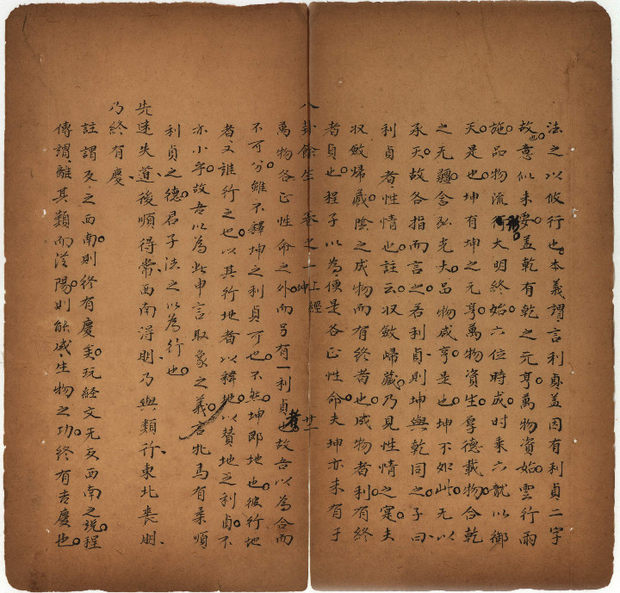 法之以攸行也本義謂言利貞蓋因有利貞二字
故也意似未瑩蓋乾有乾之元亨萬物資始雲行雨
施品物流形大明終始六位時成時乘六龍以御
天是也坤有坤之元亨萬物資生厚德載物合乾
之无疆含弘光大品物咸亨是也坤不如此无以
承天故各指而言之若利貞則坤與乾同之子曰
利貞者性情也註云収斂歸藏乃見性情之寔夫
収斂歸藏陰之成物而有終者也成物者利有終
者貞也程子以為便是各正性命夫坤亦未有于
八卦餘生 卷之一 上經 坤 廿一
萬物各正性命之外而另有一利貞也故吾以為合而
不可分雖不釋坤之利貞可也不然坤即地也彼行地
者又誰行之也以其行地者以釋地以贊地之利貞不
亦小乎故吾以為此申言取象之義言牝馬有柔順
利貞之德君子法之以為行也
先迷失道後順得常西南得朋乃與類行東北喪朋
乃終有慶
註謂反之西南則終有慶矣玩經文无反西南之說程
傳謂離其類而從陽則能成生物之功終有吉慶也